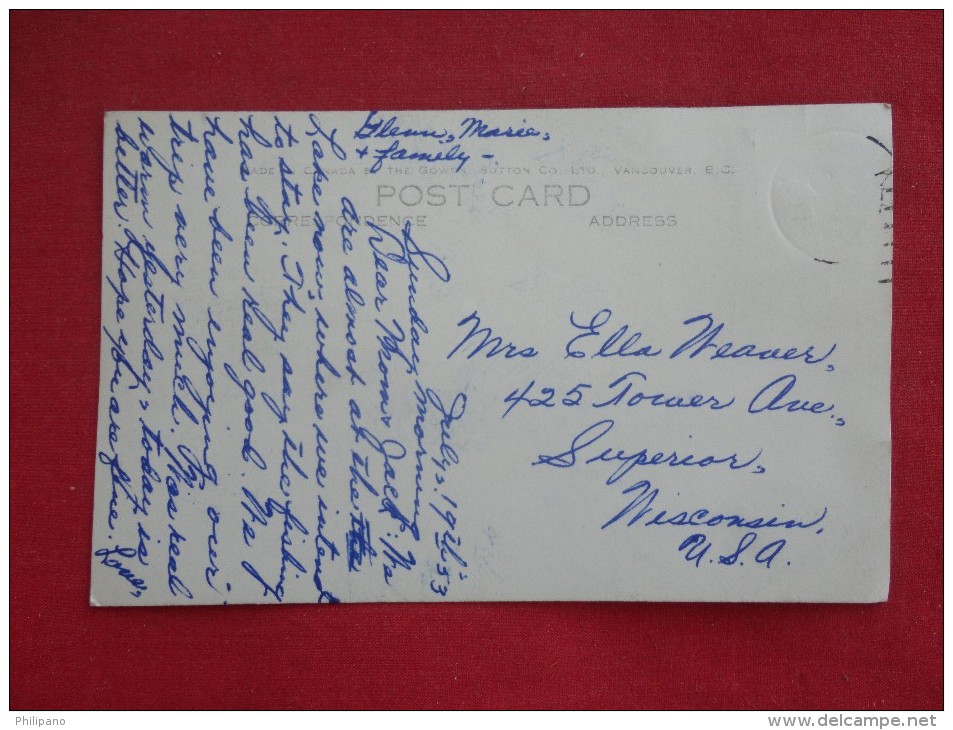 MADE IN CANADA BY THE GOWEN, SUTTON CO. LTD., VANCOUVER, B.C.
POST CARD
CORRESPONDENCE
ADDRESS
Sunday morning
July, 19th 53
Dear Mom & Jack: We
are almost at the
Lake now, where we intend
to stay. They say the fishing
has been real good. We
have been enjoying our
trip very much. Was real
warm yesterday, today is
better. Hope you are fine.
Love,
Glenn, Marie,
& family -
Mrs Ella Weaver,
425 Tower Ave.,
Superior,
Wisconsin,
U.S.A.
Philipano
www.delcampe.net